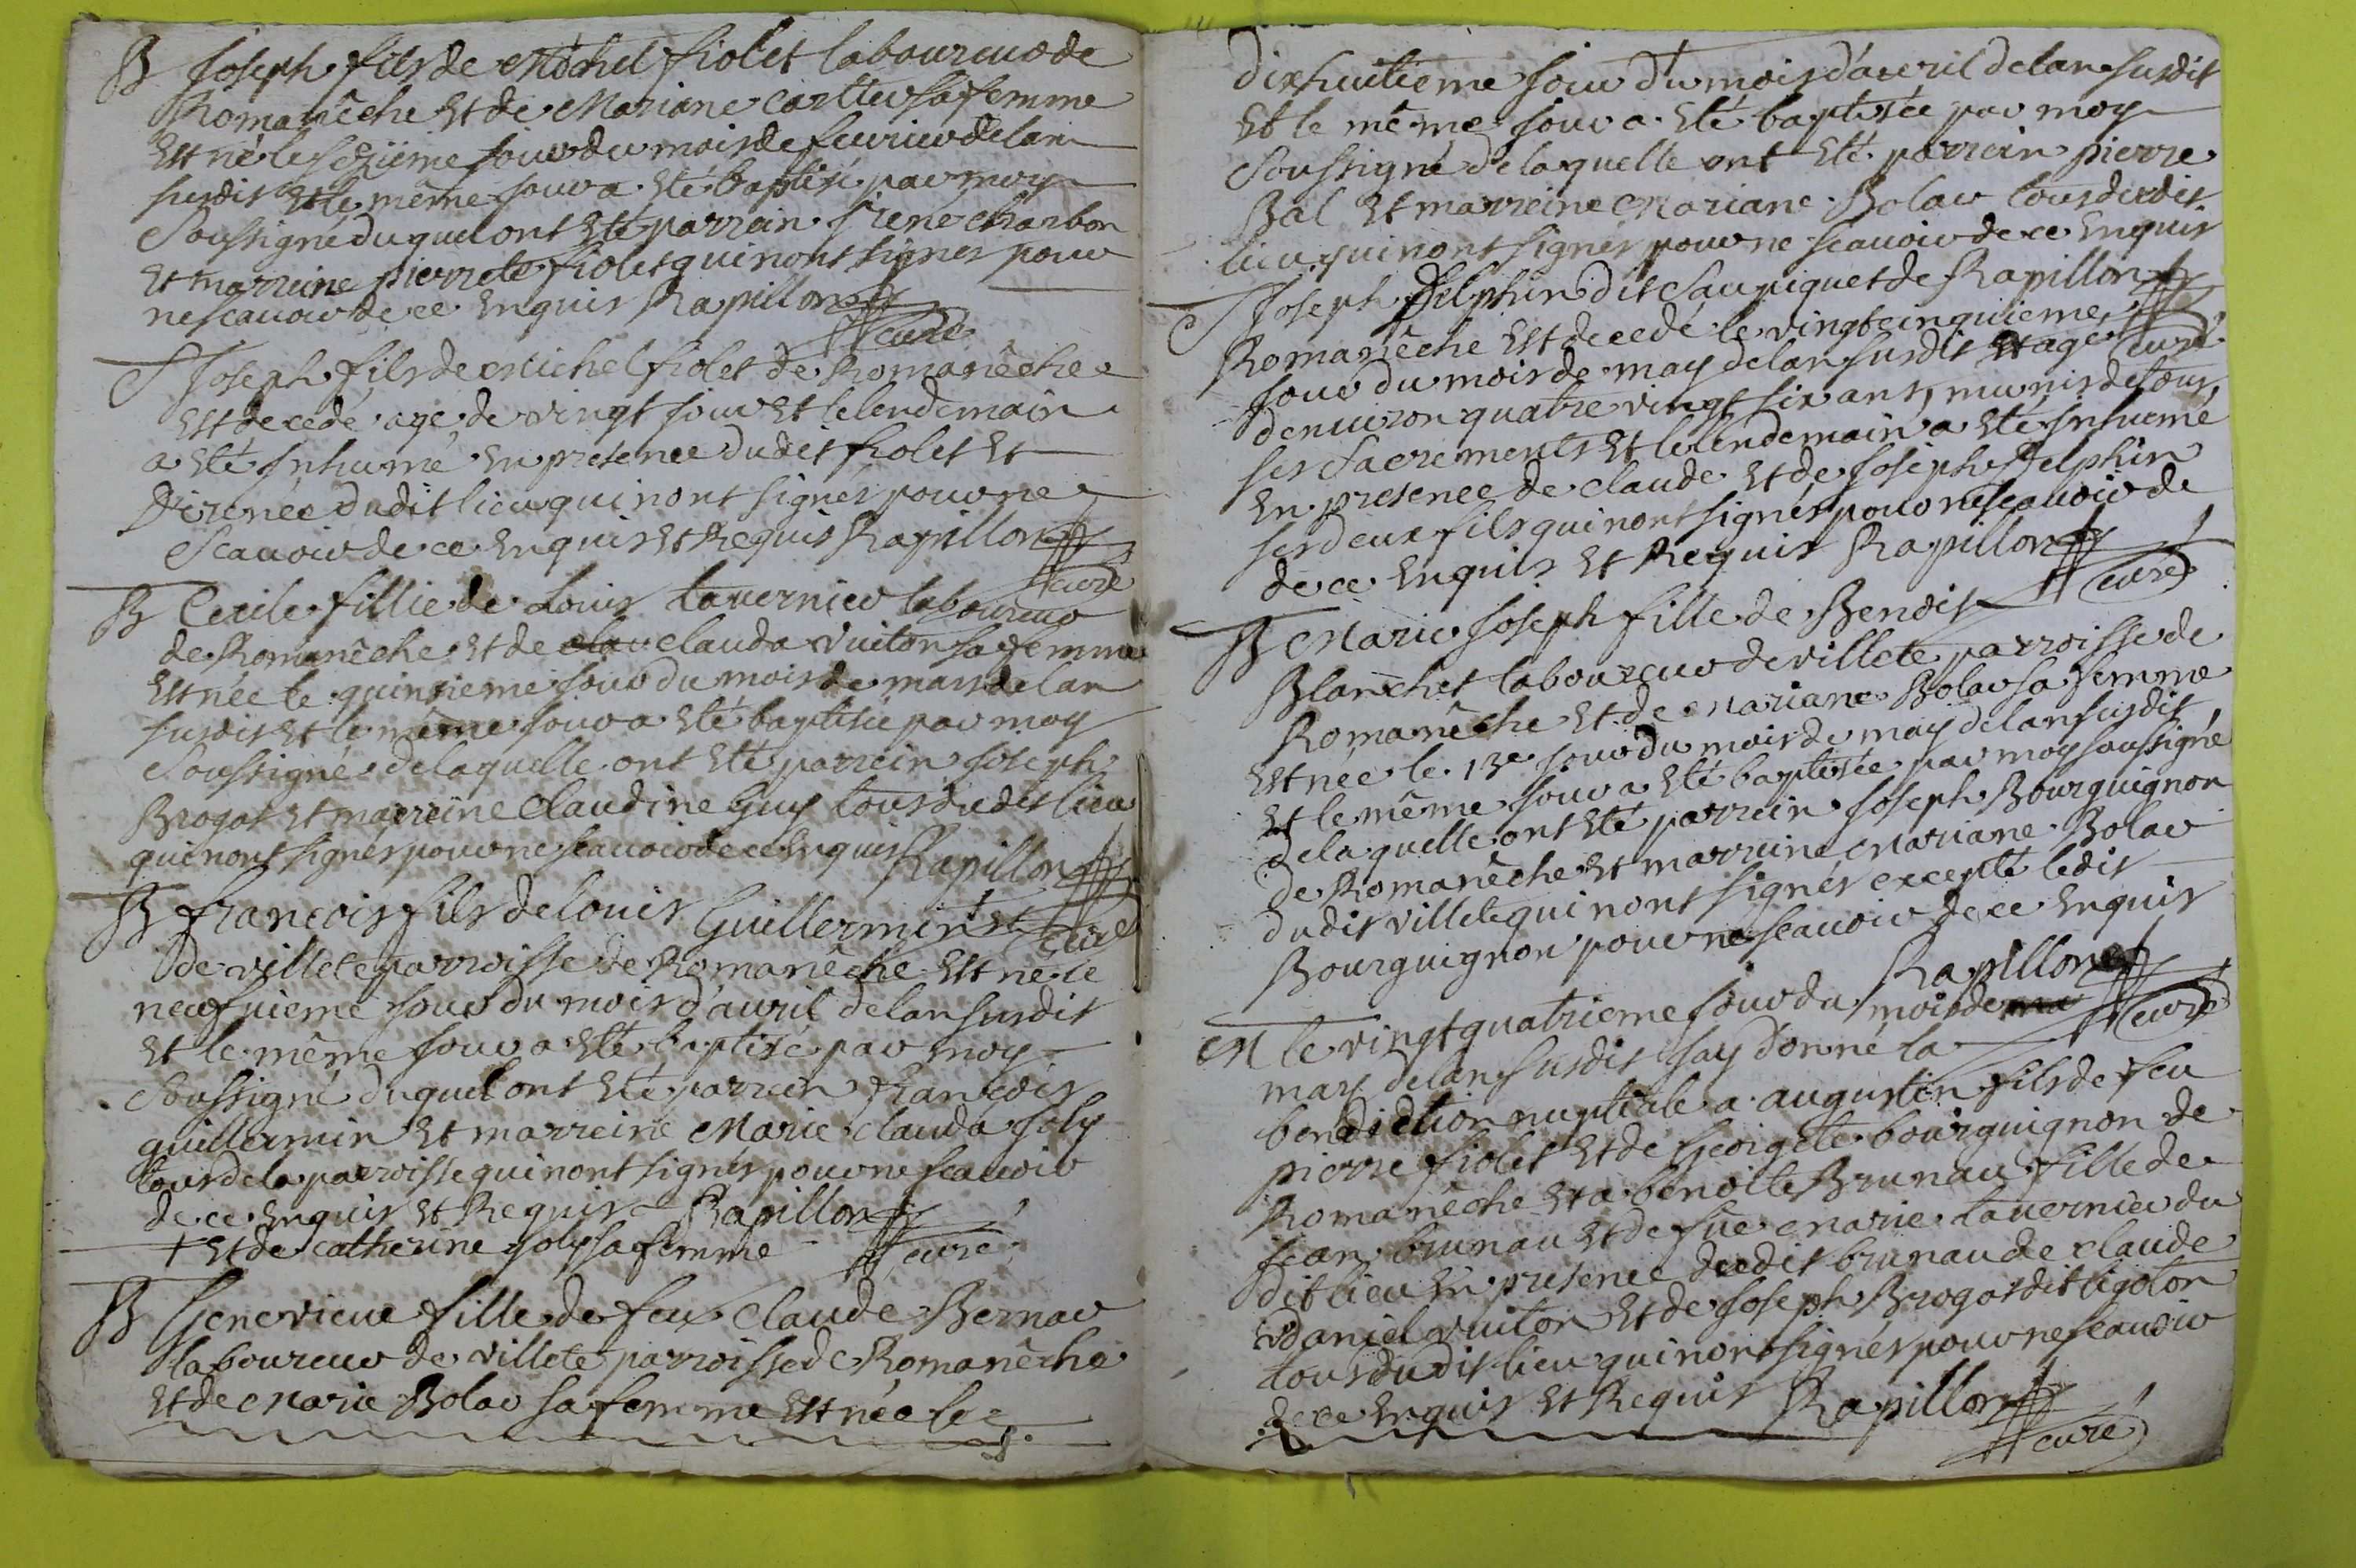 B Joseph fils de Michel fiolet laboureur de
Romanêche Et de Mariane cartier sa femme
Est né le seziême jour du mois de feurier de lan
susdit Et le même jour a Eté baptisé par moy
Soussigné du quel ont Eté parrein Irené charbon
Et marreine pierrete fiolet qui nont signés pour
ne scauoir de ce Enquis Rapillon
curé
S Joseph fils de Michel fiolet de Romanêche
Est decedé agé de vingt jour et le lendemain
a Eté Inhumé En présence dudit fiolet Et
Direnée dudit lieu qui nont signés pour ne
Scauoir de ce Enquis Et Requis Rapillon
curé
B Cecile fillie de Louis tauernier laboureur
de Romanêche Et de clau clauda vuiton sa femme
Est née le quinsieme jour du mois de mars de lan
susdit Et le même jour a Eté baptisée par moy
Soussigné de laquelle ont Eté parrein Joseph
Brogat Et marreine Claudine Guy tous dudit lieu
qui nont signés pour ne scauoir de ce Enquis Rapillon
curé
B francois fils de louis Guillermin + Et
de villete parroisse de Romanêche Est né le
neufuieme jour du mois d'auril de lan susdit
Et le même jour a Eté baptisé par moy
Soussigné du quel ont Eté parrein francois
guillermin Et marreine Marie clauda Joly
tous de la parroisse qui nont signés pour ne scauoir
de ce Enquis Et Requis Rapillon
+ Et de catherine joly sa femme curé
B Genevieue fille de feu claude Bernar
laboureur de villete parroisse de Romanêche
Et de Marie Bolar sa femme Est née le
dixhuitieme jour du mois d'aueril de lan susdit
Et le même jour a Eté baptisée par moy
Soussigné de laquelle ont Eté parrein pierre
Bal Et marreine Mariane Bolar tous dudit
lieu qui nont signés pour ne scauoir de ce Enquis
Rapillon
curé
S Joseph Delphin dit Saupiquet de
Romanêche Est decedé le vingtcinquieme
jour du mois de may de lan susdit Et agé
denuiron quatre vingt six ans, munis de tous
ses Sacrements Et le lendemain a Eté Inhumé
En presence de claude Et de Joseph Delphin
ses deux fils qui nont signés pour ne scauoir de
de ce Enquis Et Requis Rapillon
curé
B Marie Joseph fille de Benoit
Blanchet laboureur de villete parroisse de
Romanêche Et de Mariane Bolar sa femme
Est née le 13e jour du mois de may de lan susdit
Et le même jour a Eté baptisée par moy soussigné
de la quelle ont Eté parrein Joseph Bourguignon
de Romanêche Et marreine Mariane Bolar
dudit villete qui nont signés excepté ledit
Bourguignon pour ne scauoir de ce Enquis
Rapillon
curé
M le vingtquatrieme jour du mois de ma
may de lan susdit Jay donné la
benediction nuptiale a augustin fils de feu
pierre fiolet Et de Georgete bourguignon de
Romanêche Et a benoite Brunau fille de
jean brunau Et de fue Marie tauernier du
dit lieu En presence dudit brunau de claude
daniel vuiton Et de Joseph Brogat dit ligoton
tous dudit lieu qui nont signés pour ne scauoir
de ce Enquis Et Requis Rapillon
curé